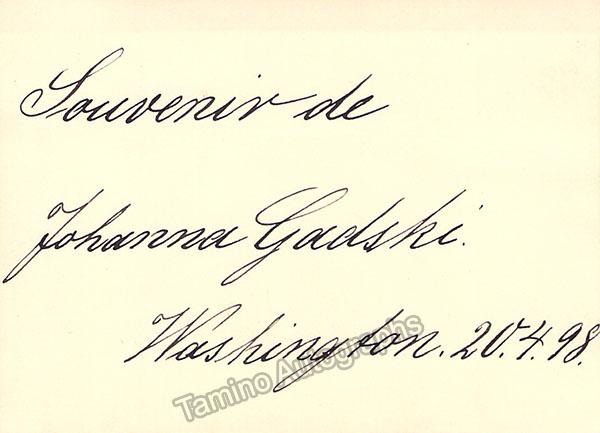 Souvenir de
Johanna Gadski.
Washington. 20.4.98.
Tamino Autographs